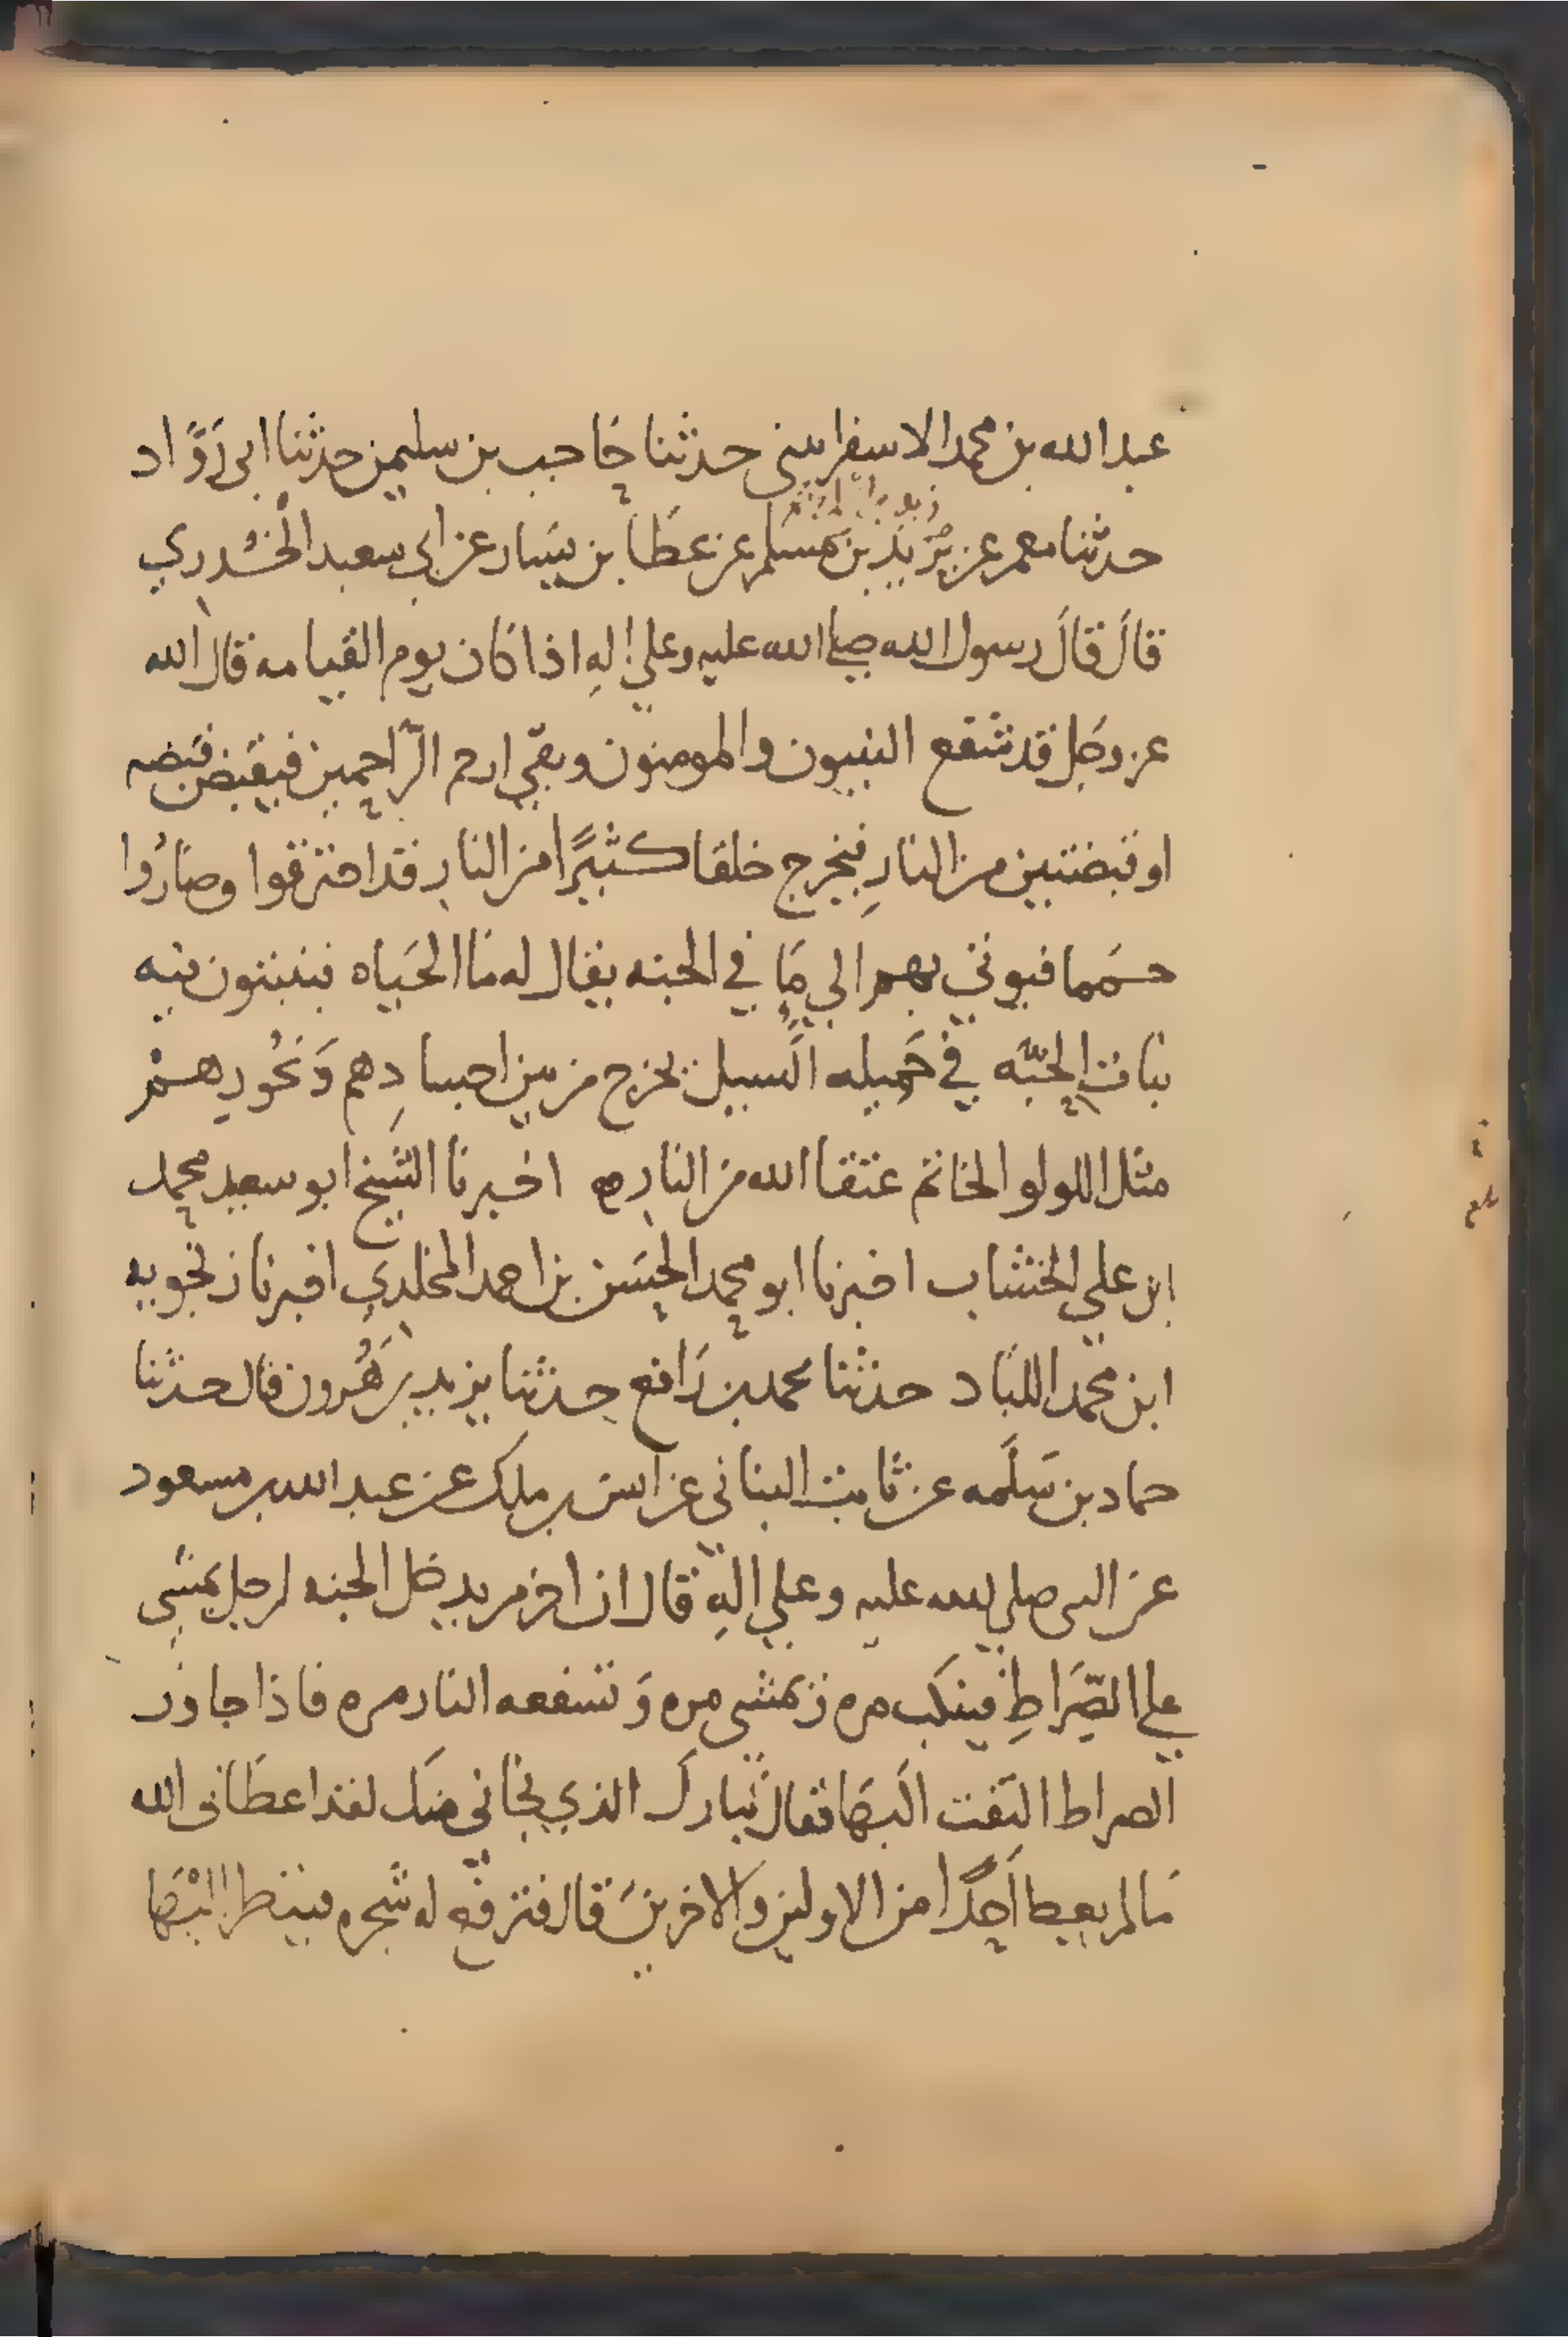 عبد الله بن محمد الاسفرايني حدثنا حاجب بن سليمن حدثنا ابي روّاد
حدثنا معمر عن بن مسلم عن عطا بن يسار عن ابي سعيد الخدري
قالَ قالَ رسول الله صلى الله عليه وعلى اله اذا كان يوم القيامه قال الله
عز وجل قد شفع النبيون والمومنون وبقي ارحم الرّاحمين فيقبض قبضه
او قبضتين من النارِ فيخرج خلقا كثيرًا من النارِ قد احترقوا وصارُوا
حُمَما فيوتي بهم الي مَا في الجنه يقال له مَا الحَياه فينبتون فيه
نبات الحِبّه في حَميله السيل يخرج من بين اجسادِهم وَنحُورهمْ
مثل اللولو الخاتم عتقا الله من النار ه اخبرنا الشيخ ابو سعيد محمد
ابن علي الخشاب اخبرنا ابو محمد الحسَن بن احمد المخلدي اخبرنا زنجويه
ابن محمد اللبَاد حدثنا محمد بن رَافع حدثنا يزيد بن هَرُون قال حدثنا
حماد بن سَلَمه عن ثابت البناني عن انس بن ملك عن عبد الله بن مسعود
عن النبي صلى الله عليه وعلى الهِ قال ان اخر من يدخل الجنه لرجل يمشي
على الصِّرَاطِ فينكَب مره وَيمشي مره وَتسفعه النار مره فاذا جاوز
الصراط التفت اليهَا فقال تبَارك الذي نجَاني منكِ لقد اعطَاني الله
مَا لم يعط احَدًا من الاولين والاخرينَ قال فترفع له شجره فينظر اليْهَا